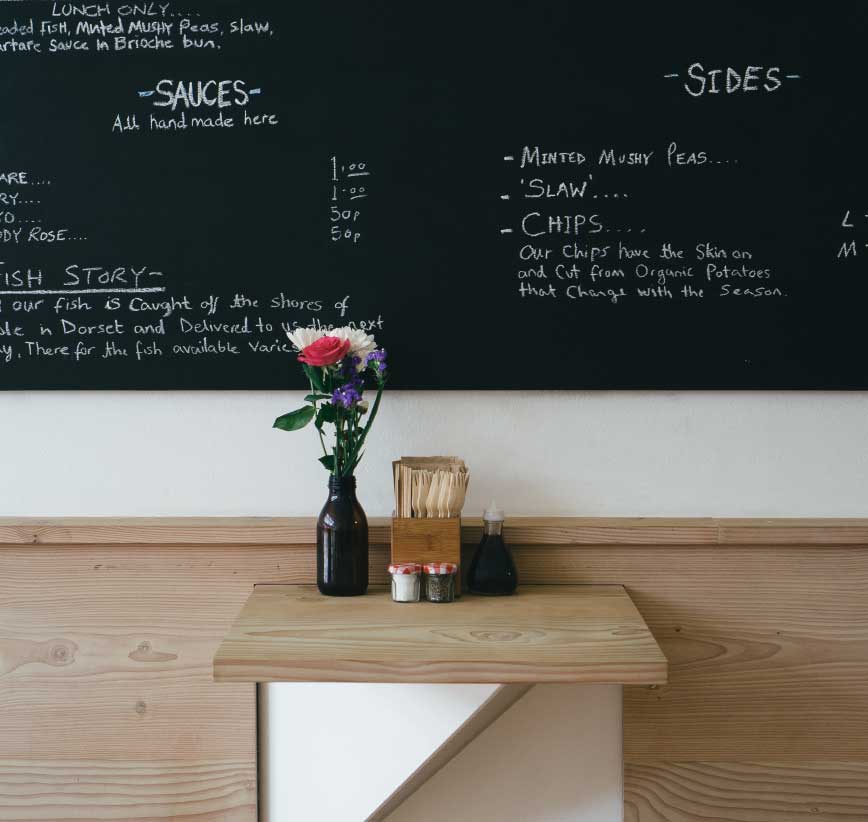 LUNCH ONLY....
eaded Fish, Minted Mushy Peas, Slaw,
artare Sauce in Brioche bun.
-SAUCES-
All handmade here
ARE.... 1.00
RY.... 1.00
YO.... 50p
DY ROSE.... 50p
FISH STORY-
our fish is Caught off the shores of
in Dorset and Delivered to us the next
y, There for the fish available Varies
-SIDES-
- MINTED MUSHY PEAS....
- 'SLAW'....
- CHIPS....
Our Chips have the Skin on
and Cut from Organic Potatoes
that Change with the Season.
L
M